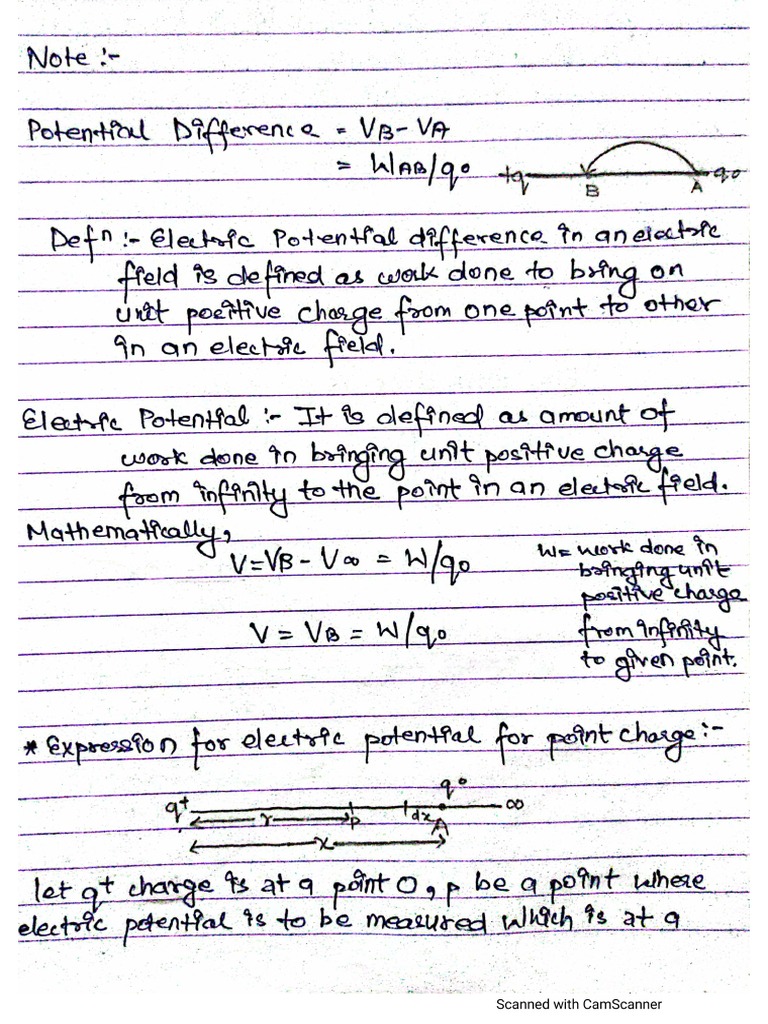 Note :-
Potential Difference = VB - VA
= WAB/q0
+q B A q0
Defn :- Electric Potential difference in an electric
field is defined as work done to bring on
unit positive charge from one point to other
in an electric field.
Electric Potential :- It is defined as amount of
work done in bringing unit positive charge
from infinity to the point in an electric field.
Mathematically,
V = VB - V∞ = W/q0
V = VB = W/q0
W = work done in
bringing unit
positive charge
from infinity
to given point.
* Expression for electric potential for point charge :-
q0
q+ r P dx A ∞
x
let q+ charge is at a point O, P be a point where
electric potential is to be measured which is at a
Scanned with CamScanner